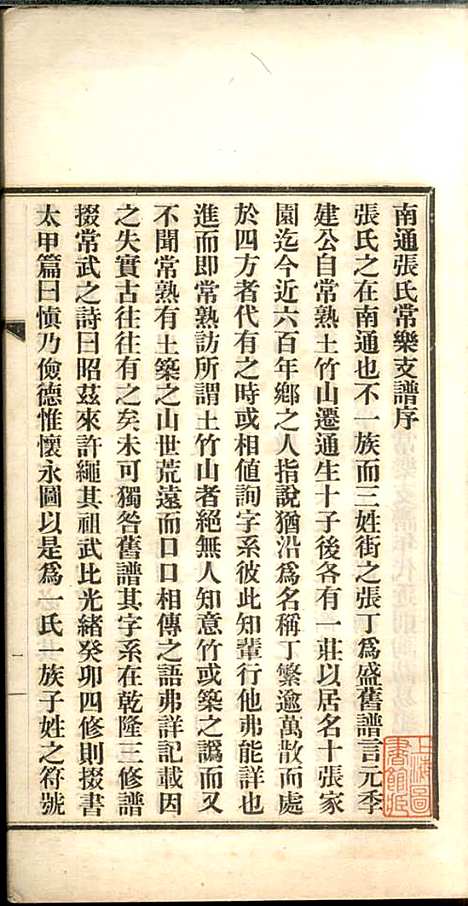 南通張氏常樂支譜序
張氏之在南通也不一族而三姓街之張丁為盛舊譜言元季
建公自常熟土竹山遷通生十子後各有一莊以居名十張家
園迄今近六百年鄉之人指說猶沿為名稱丁繁逾萬散而處
於四方者代有之時或相値詢字系彼此知輩行他弗能詳也
進而即常熟訪所謂土竹山者絕無人知意竹或築之譌而又
不聞常熟有土築之山世荒遠而口口相傳之語弗詳記載因
之失實古往往有之矣未可獨咎舊譜其字系在乾隆三修譜
掇常武之詩曰昭茲來許繩其祖武比光緒癸卯四修則掇書
太甲篇曰愼乃儉德惟懷永圖以是為一氏一族子姓之符號
一
上海圖
書館藏